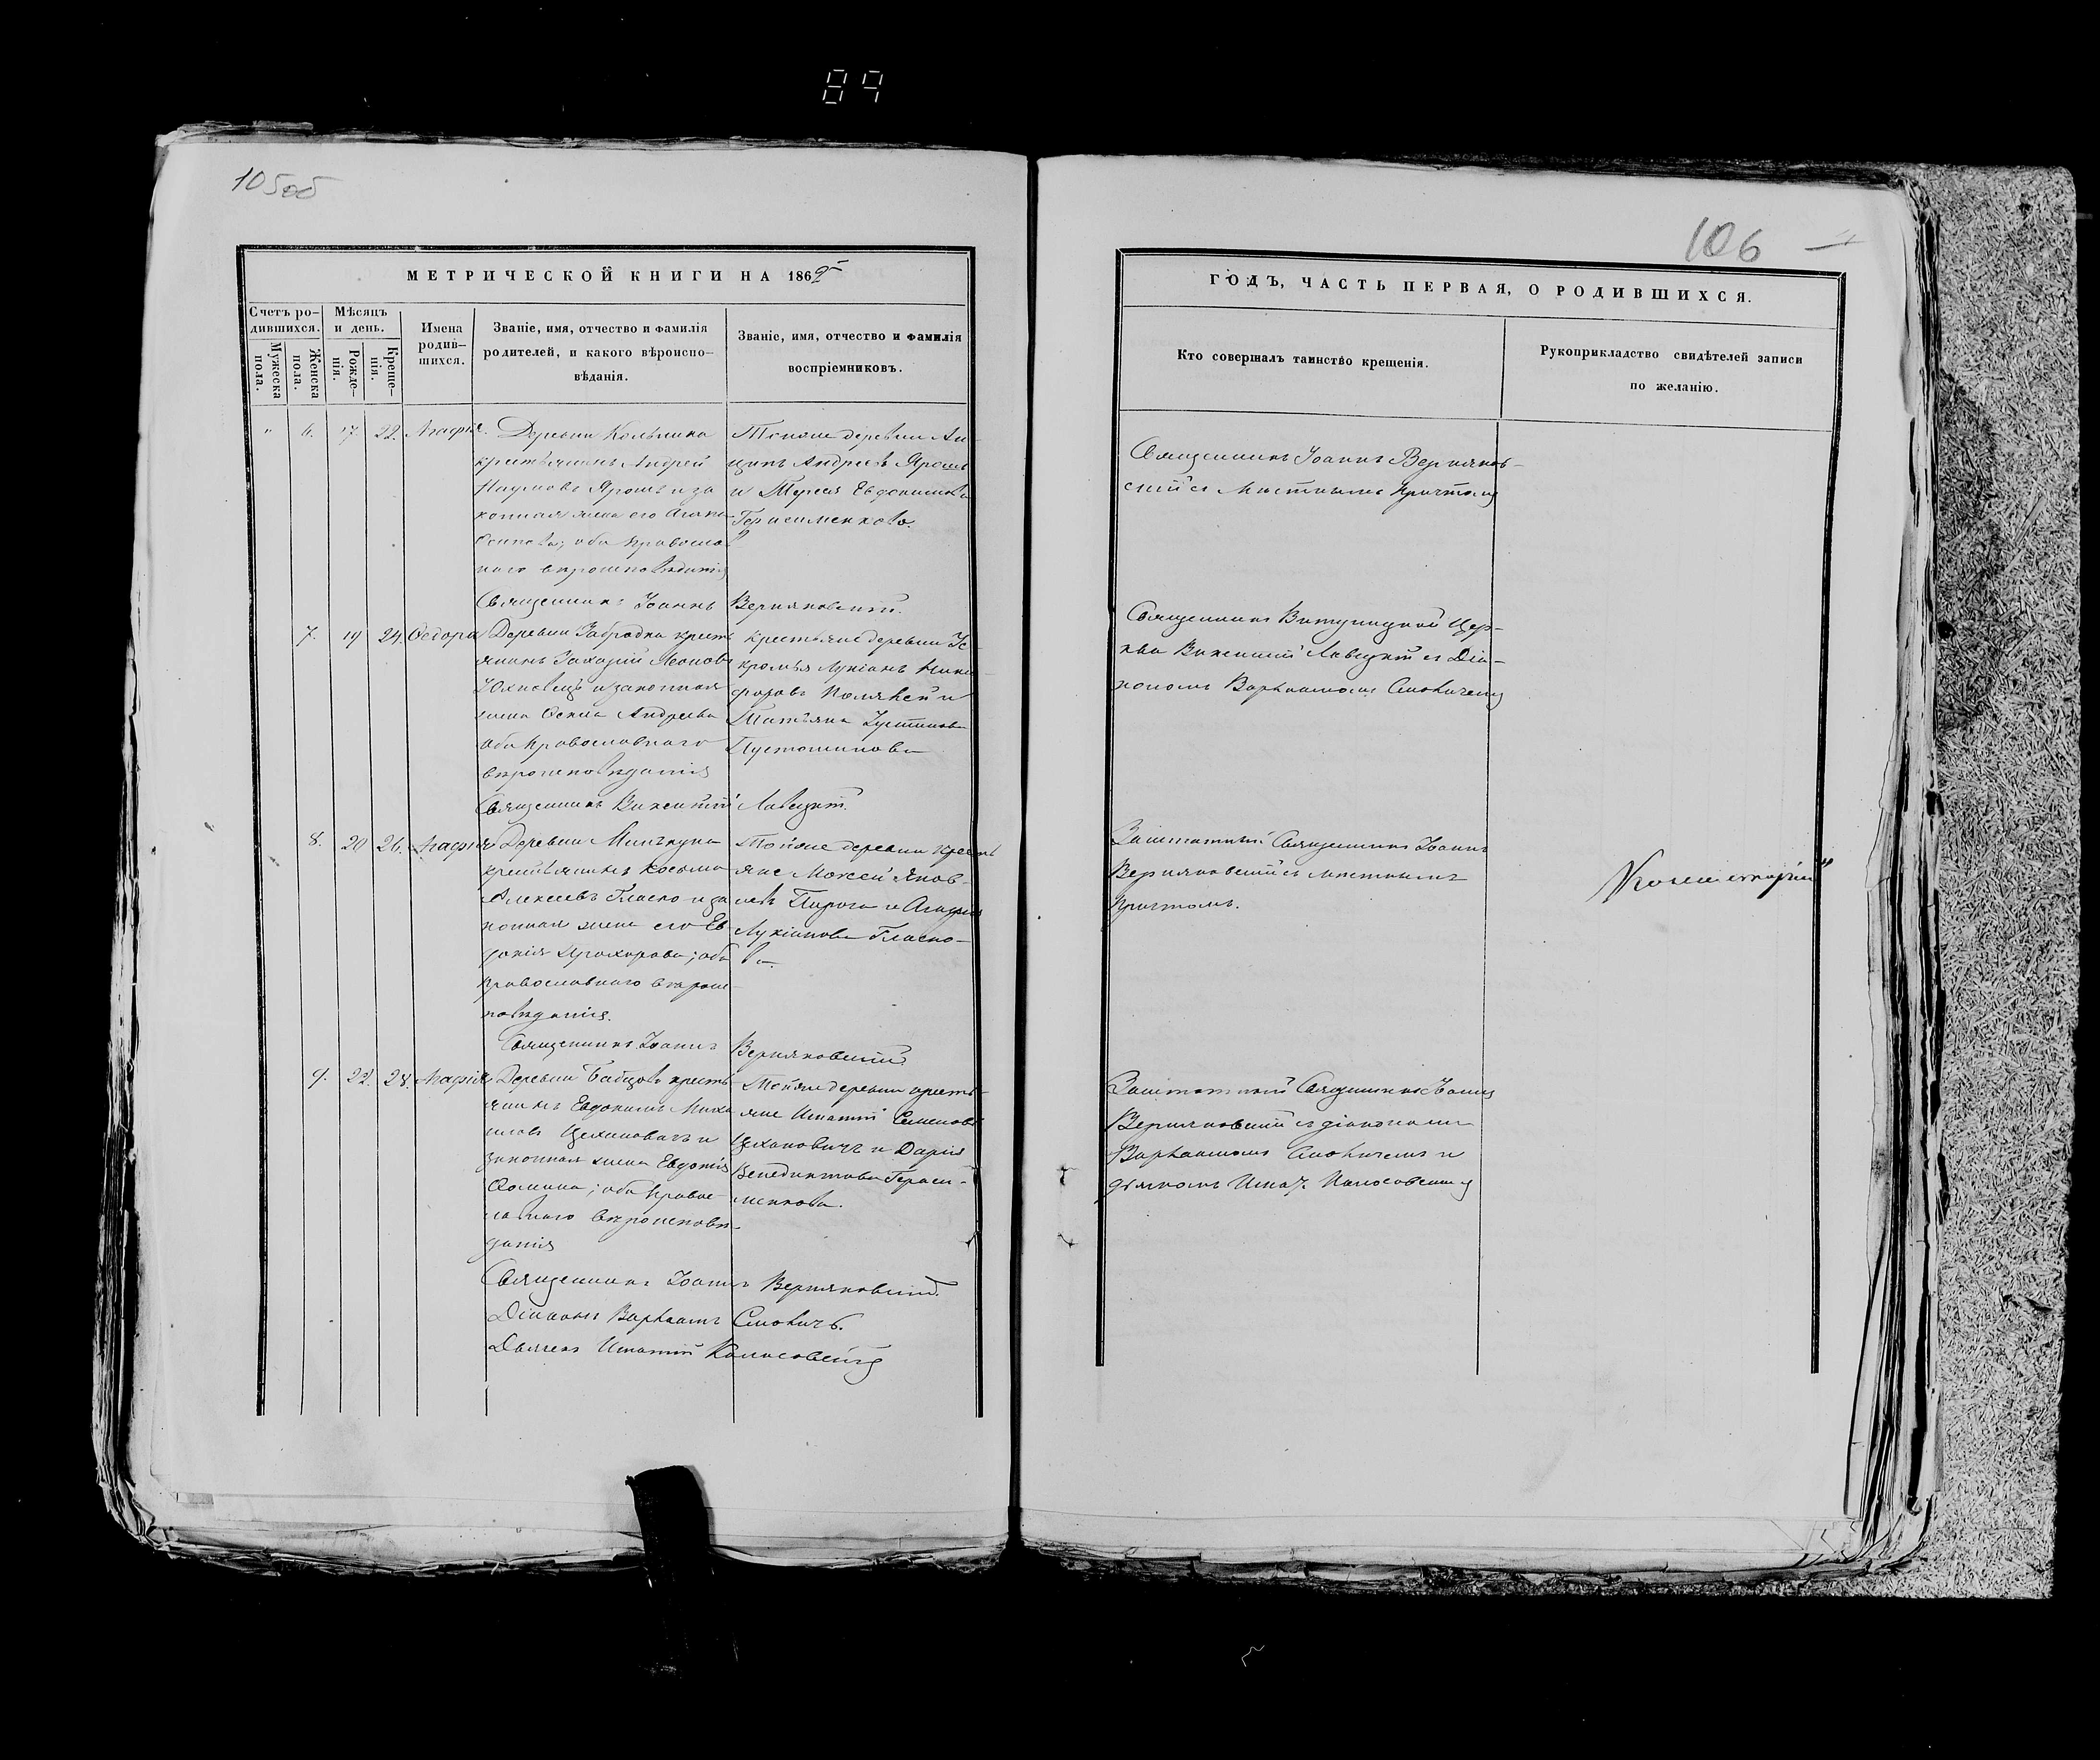 89
105об
106
МЕТРИЧЕСКОЙ КНИГИ НА 1869
Счетъ ро-
дившихся.
Мужеска
пола.
Женска
пола.
Мѣсяцъ
и день.
Рожде-
нія.
Креще-
нія.
Имена
родив-
шихся.
Званіе, имя, отчество и фамилія
родителей, и какого вѣроиспо-
вѣданія.
Званіе, имя, отчество и фамилія
воспріемниковъ.
" 6. 17 22. Агафія.
Деревни
крестьянинъ Андрей
Наумовъ Ярошъ и за
конная жена его
Осипова; оба Православ
наго вѣроисповѣданія
Тойже деревни Ан-
Андреевъ Ярошъ
и Евдокимова
Герасименкова.
Священникъ Іоаннъ Верниковскій.
7. 19 24. Ѳедора
Деревни Забродья кресть
янинъ Захарій Леоновъ
Юхновецъ и законная
жена Андреева
оба Православнаго
вѣроисповѣданія
крестьяне деревни
Лукіанъ Ники
форовъ и
Татьяна Іустинова
Пустошинова
Священникъ Викентій Лавецкій.
8. 20 26. Агафія
Деревни
крестьянинъ Косьма
Алексеевъ Гласко и за
конная жена его Ев
докія Прохорова; оба
православнаго вѣроис-
повѣданія.
Тойже деревни кресть
яне Мойсей Яков-
левъ Пирога и Агафія
Лукіанова Гласко-
ва.
Священникъ Іоаннъ Верниковскій.
9. 22. 28. Агафія
Деревни Бабцова кресть
янинъ Евдокимъ Миха
иловъ Цехановичъ и
законная жена Евдокія
Ѳомина; оба Правос-
лавнаго вѣроисповѣ-
данія
Тойже деревни кресть-
яне Игнатій Семеновъ
Цехановичъ и Дарія
Венедиктова Гераси-
менкова.
Священникъ Іоаннъ Верниковскій.
Діаконъ Варлаамъ Смовичъ.
Дьячекъ Игнатій
ГОДЪ, ЧАСТЬ ПЕРВАЯ, О РОДИВШИХСЯ.
Кто совершалъ таинство крещенія.
Рукоприкладство свидѣтелей записи
по желанію.
Священникъ Іоаннъ Верников-
скій съ Мѣстнымъ причтомъ
Священникъ Цер-
кви Викентій Лавецкій съ Діа-
кономъ Варлаамомъ Смовичемъ
Заштатный Священникъ Іоаннъ
Верниковскій съ мѣстнымъ
причтомъ.
Заштатный Священникъ Іоаннъ
Верниковскій съ діакономъ
Варлаамомъ Смовичемъ и
дьячкомъ